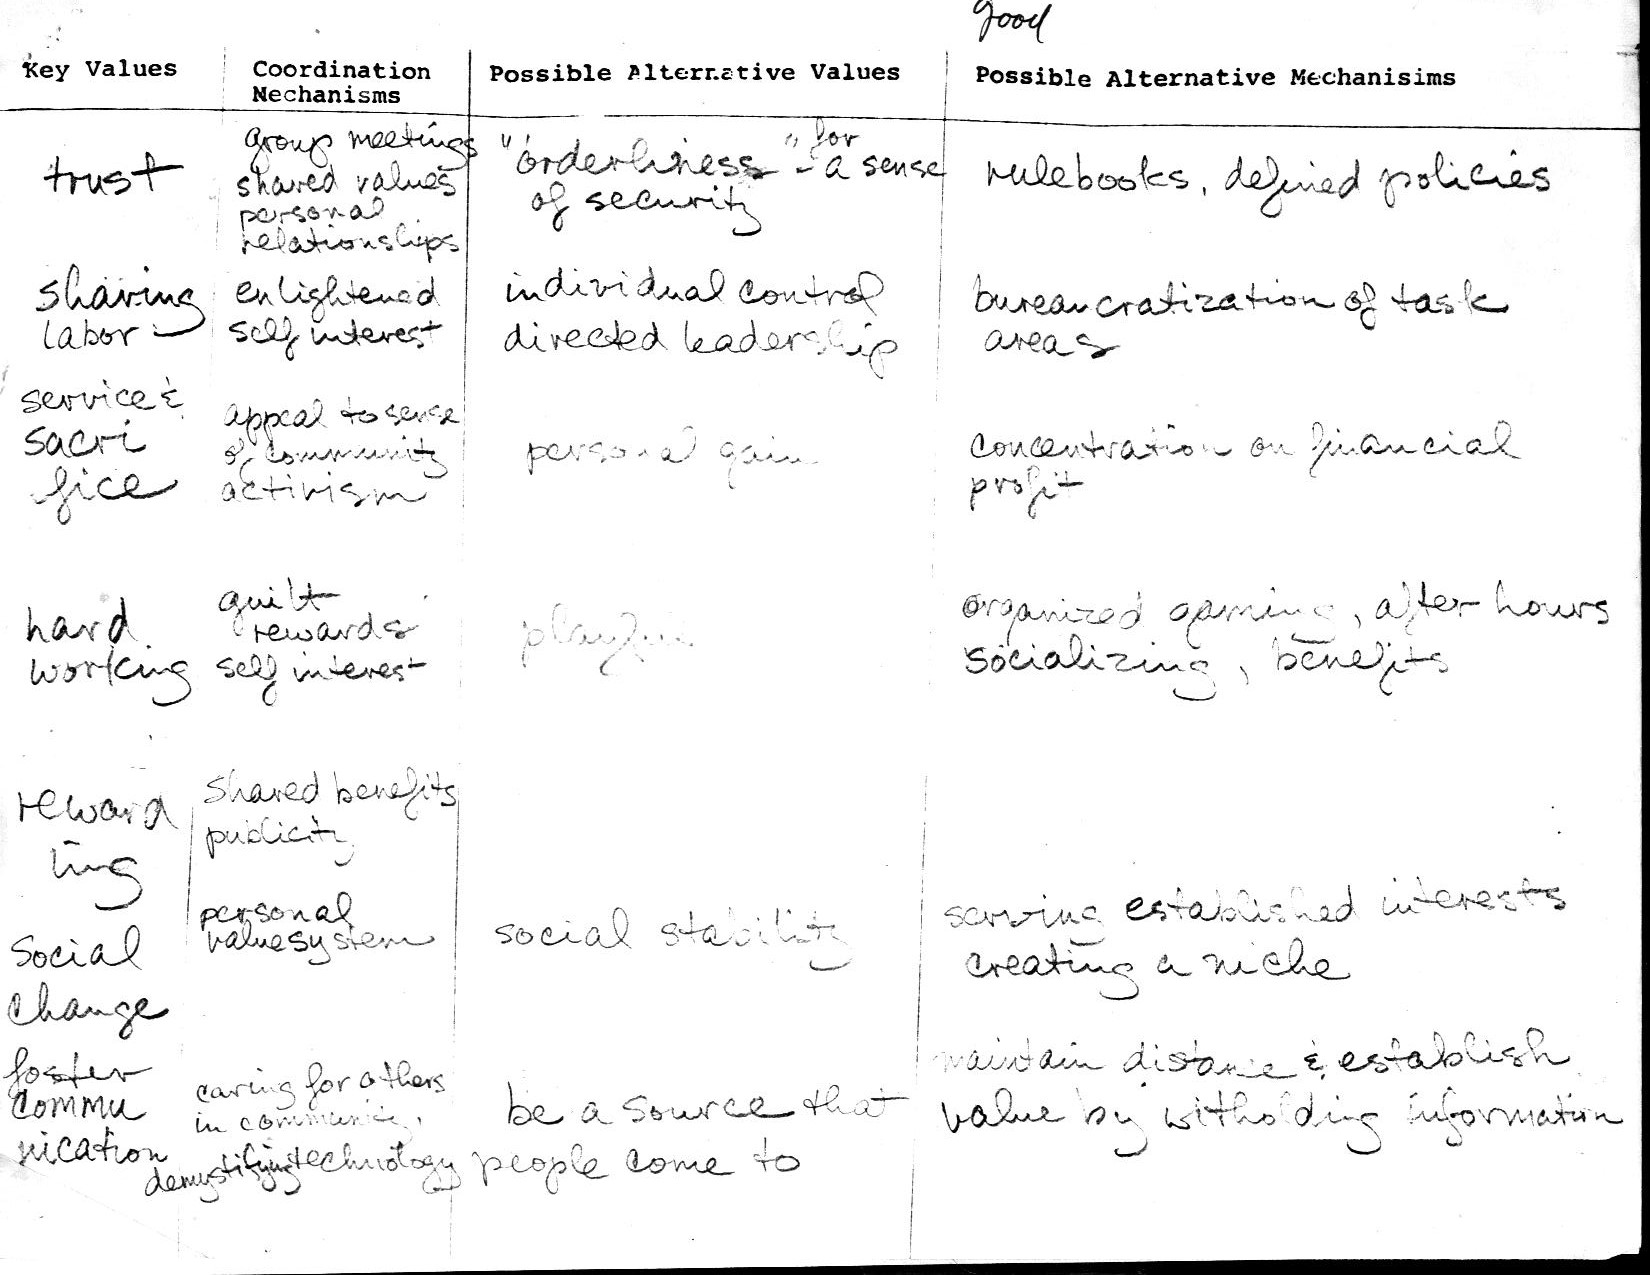 good
Key Values
Coordination
Mechanisms
Possible Alternative Values
Possible Alternative Mechanisims
trust
group meetings
shared values
personal
relationships
"orderliness" - for a sense
of security
rulebooks, defined policies
sharing
labor
enlightened
self interest
individual control
directed leadership
bureaucratization of task
areas
service &
sacri
fice
appeal to sense
of community
activism
personal gain
concentration on financial
profit
hard
working
guilt
rewards
self interest
organized gaming, after hours
socializing, benefits
reward
ing
shared benefits
publicity
social
change
personal
value system
social stability
serving established interests
creating a niche
foster
commu
nication
caring for others
in community,
demystifying technology
be a source that
people come to
maintain distance & establish
value by witholding information